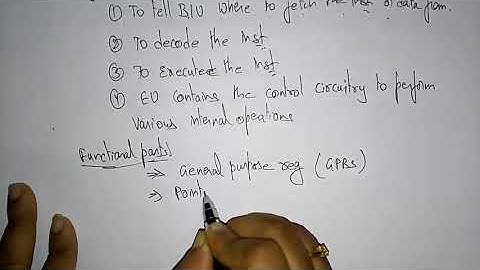 ① To tell BIU where to fetch the inst or data from.
② To decode the inst
③ To Execute the inst
④ EU contains the control circuitry to perform
various internal operations
Functional parts
⇒ General purpose reg (GPRs)
⇒ Point